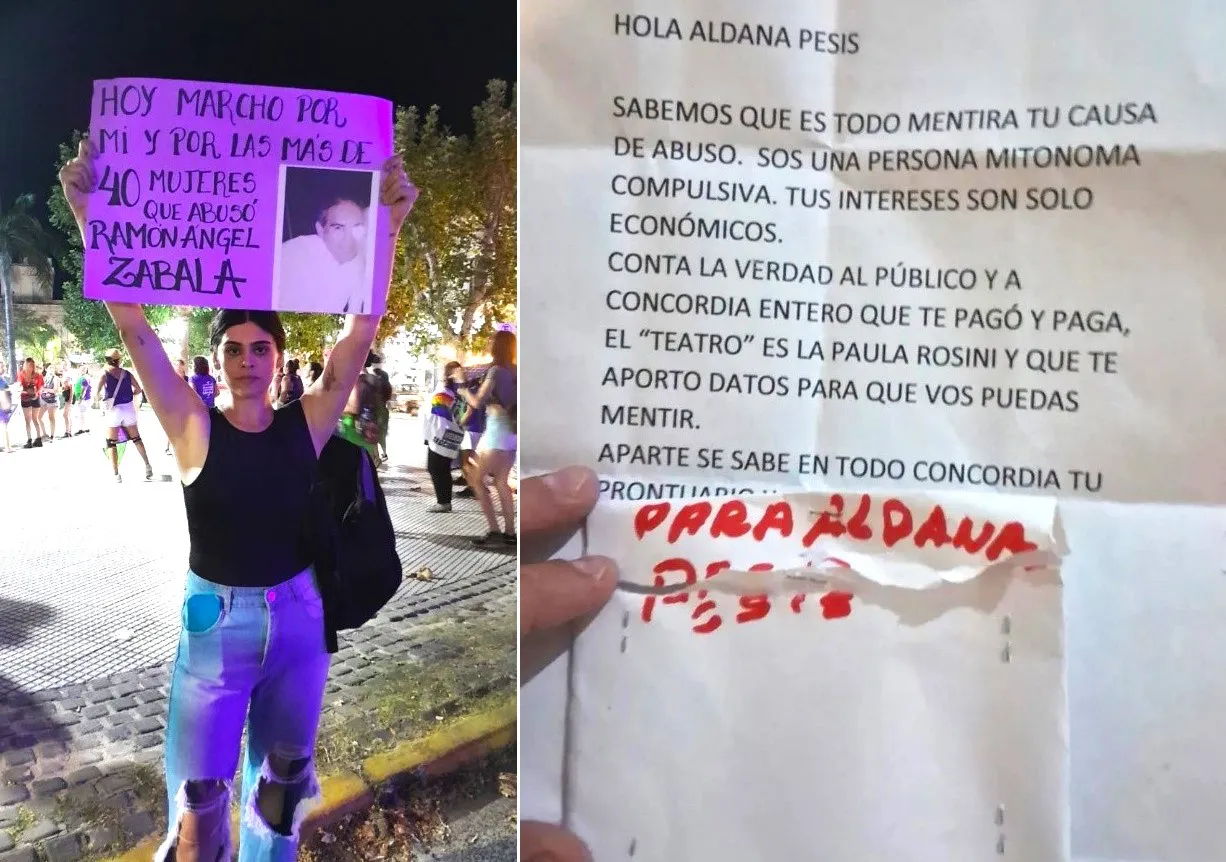 HOY MARCHO POR
MÍ Y POR LAS MÁS DE
40 MUJERES
QUE ABUSÓ
RAMÓN ANGEL
ZABALA
HOLA ALDANA PESIS
SABEMOS QUE ES TODO MENTIRA TU CAUSA
DE ABUSO. SOS UNA PERSONA MITONOMA
COMPULSIVA. TUS INTERESES SON SOLO
ECONÓMICOS.
CONTA LA VERDAD AL PÚBLICO Y A
CONCORDIA ENTERO QUE TE PAGÓ Y PAGA,
EL “TEATRO” ES LA PAULA ROSINI Y QUE TE
APORTO DATOS PARA QUE VOS PUEDAS
MENTIR.
APARTE SE SABE EN TODO CONCORDIA TU
PRONTUARIO
PARA ALDANA
PESIS